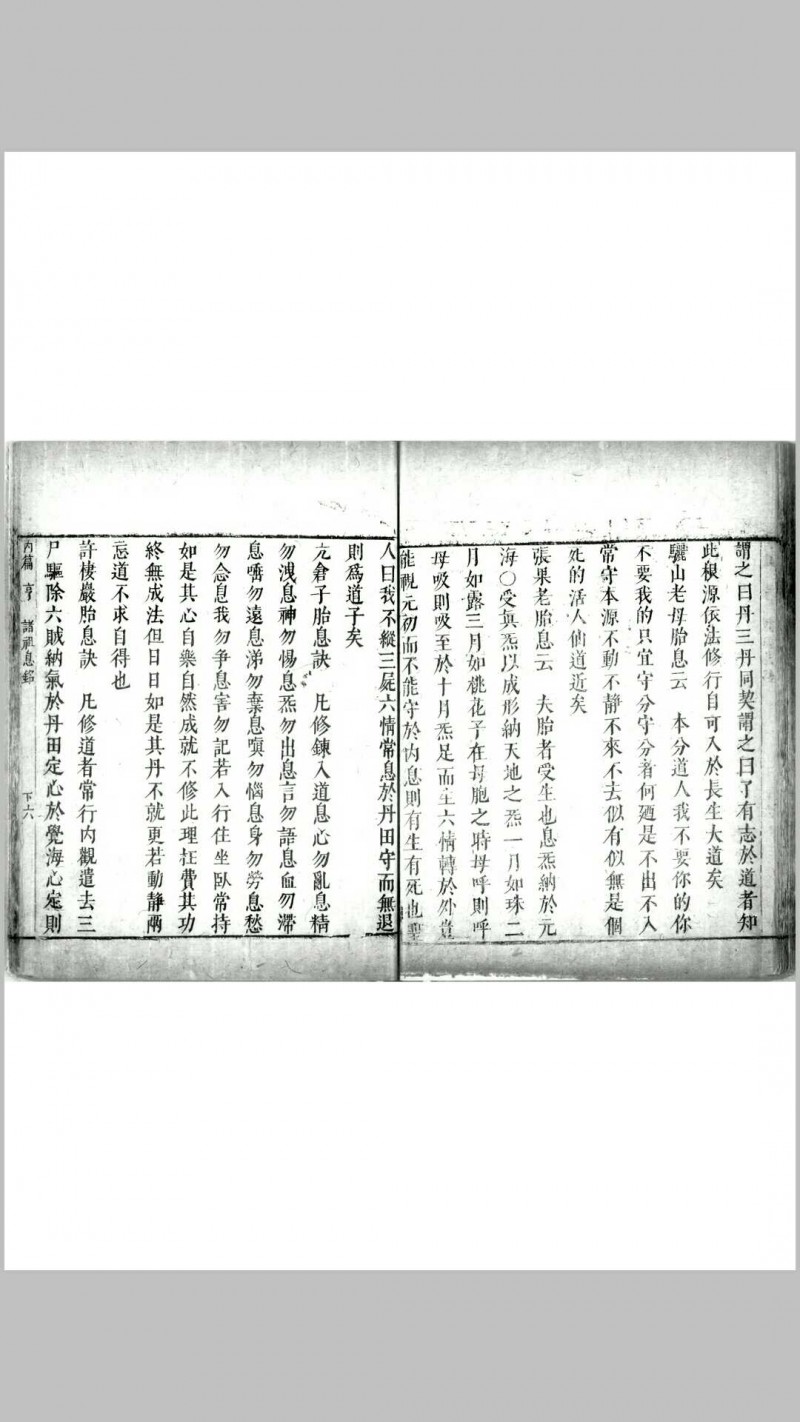 謂之曰丹三丹同契謂之曰了有志於道者知
此根源依法修行自可入於長生大道矣
驪山老母胎息云　本分道人我不要你的你
不要我的只宜守分守分者何廼是不出不入
常守本源不動不靜不來不去似有似無是個
死的活人仙道近矣
張果老胎息云　夫胎者受生也息炁納於元
海〇受眞炁以成形納天地之炁一月如珠二
月如露三月如桃花子在母胞之時母呼則呼
母吸則吸至於十月炁足而生六情轉於外豈
能視元初而不能守於內息則有生有死也聖
人曰我不縱三屍六情常息於丹田守而無退
則爲道子矣
亢倉子胎息訣　凡修鍊入道息心勿亂息精
勿洩息神勿惕息炁勿出息言勿語息血勿滯
息唾勿遠息涕勿棄息嗔勿惱息身勿勞息愁
勿念息我勿爭息害勿記若入行住坐臥常持
如是其心自樂自然成就不修此理枉費其功
終無成法但日日如是其丹不就更若動靜兩
忘道不求自得也
許棲巖胎息訣　凡修道者常行內觀遣去三
尸驅除六賊納氣於丹田定心於覺海心定則
內篇　亨　諸祖息銘　下六